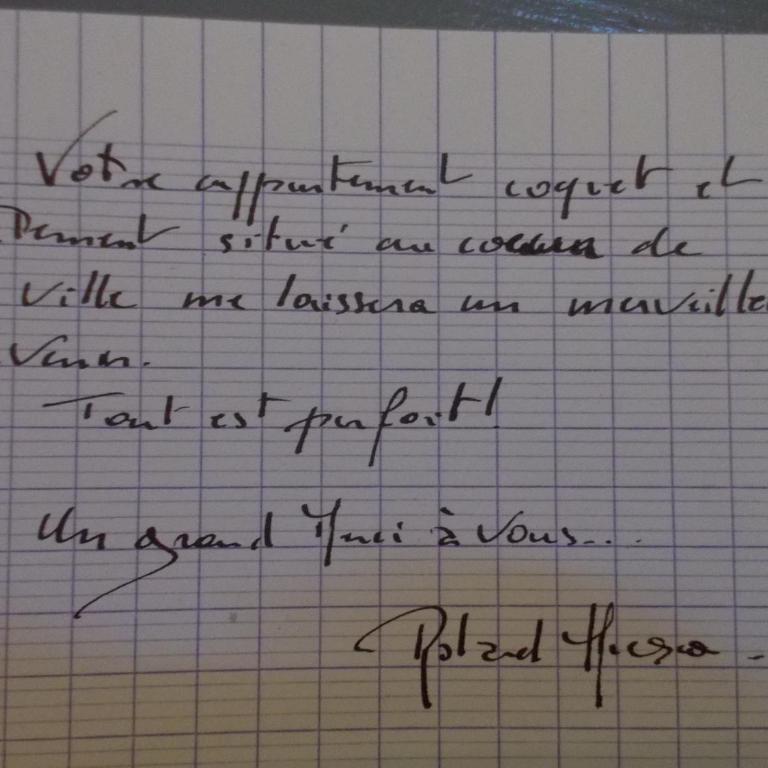 Votre appartement coquet et
Dement situé au coeur de
Ville me laissera un merveille
Tout est parfait!
Un grand Merci à Vous...
Roland